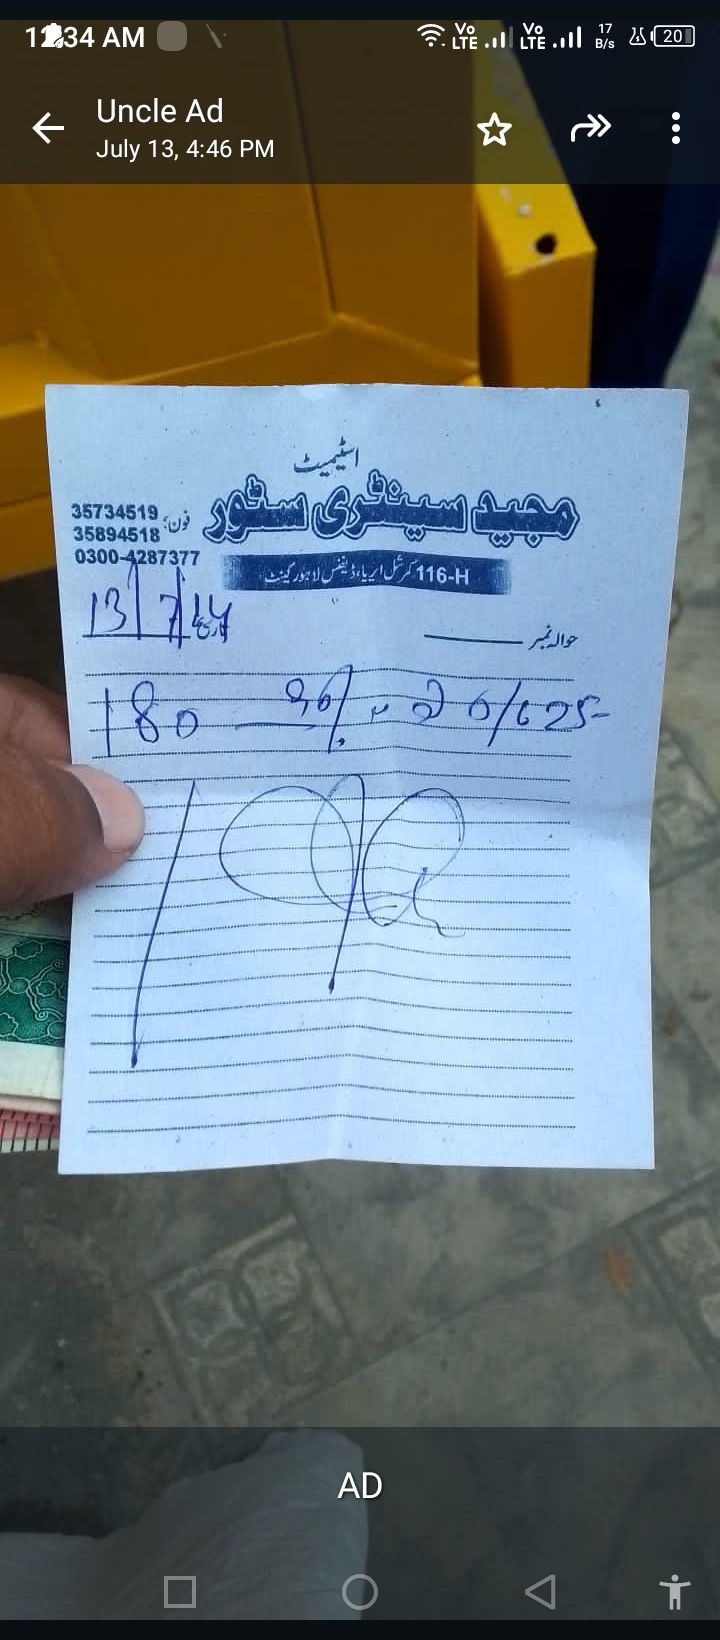 11:34 AM
Vo LTE Vo LTE 17 B/s 20
Uncle Ad
July 13, 4:46 PM
اسٹیمیٹ
مجید سینٹری سٹور
فون: 35734519
35894518
0300-4287377
116-H کمرشل ایریا، ڈیفنس لاہور کینٹ
حوالہ نمبر
تاریخ 13/7/24
180
AD